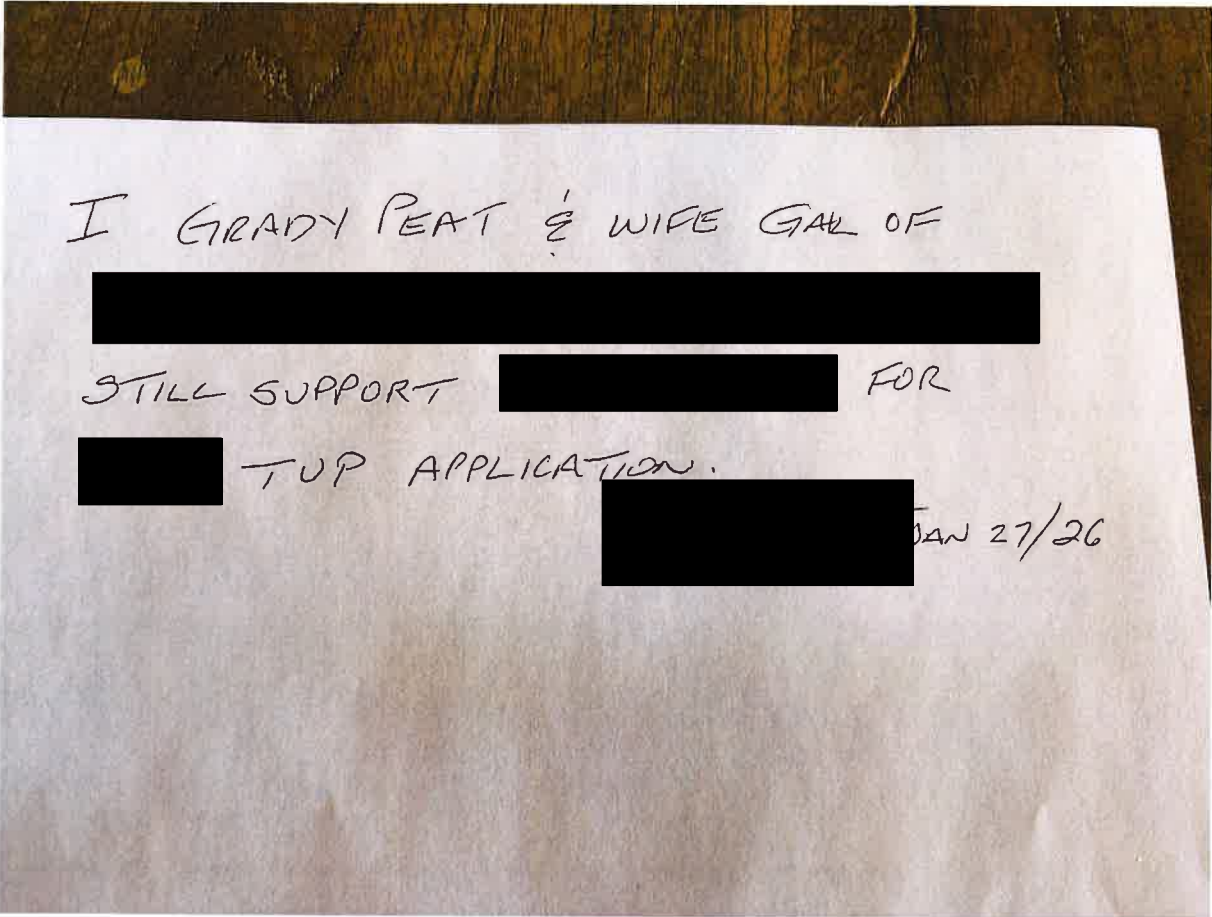 I GRADY PEAT & WIFE OF
STILL SUPPORT FOR
TUP APPLICATION.
JAN 27/26